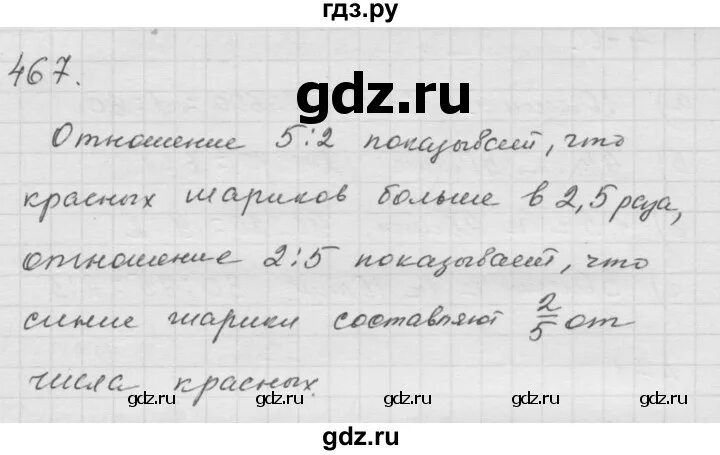 гдз.ру
467.
gdz.ru
Отношение 5:2 показывает, что
красных шариков больше в 2,5 раза,
отношение 2:5 показывает, что
синие шарики составляют 2/5 от
числа красных.
gdz.ru gdz.ru gdz.ru gdz.ru gdz.ru
gdz.ru